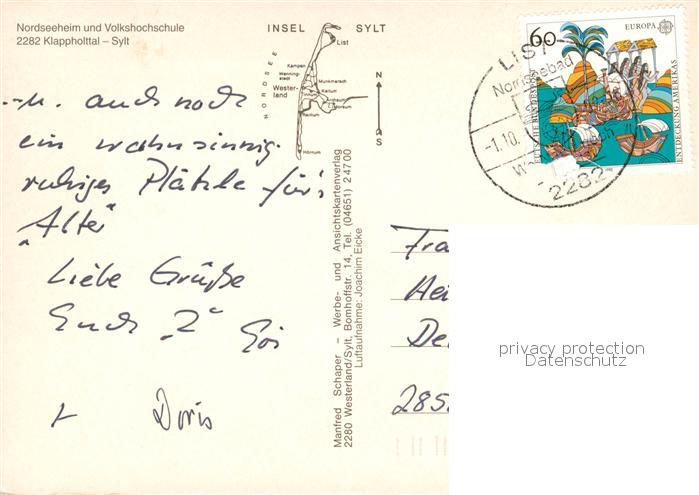 Nordseeheim und Volkshochschule
2282 Klappholttal – Sylt
INSEL SYLT
NORDSEE
List
Kampen
Wenning-
stedt
Munkmarsch
Wester-
land
Keitum
Morsum
Rantum
Hörnum
N
S
60
EUROPA
DEUTSCHE BUNDESPOST
ENTDECKUNG AMERIKAS
1992
LIST
Nordseebad
-1.10.
2282
-u. auch noch
ein wahnsinnig
ruhiges Plätzle für's
"Alter"
Liebe Grüße
Euch "2"
+ Doris
Manfred Schaper – Werbe- und Ansichtskartenverlag
2280 Westerland/Sylt, Bomhoffstr. 14, Tel. (04651) 2 47 00
Luftaufnahme: Joachim Eicke
Fra
Hei
De
285
privacy protection
Datenschutz